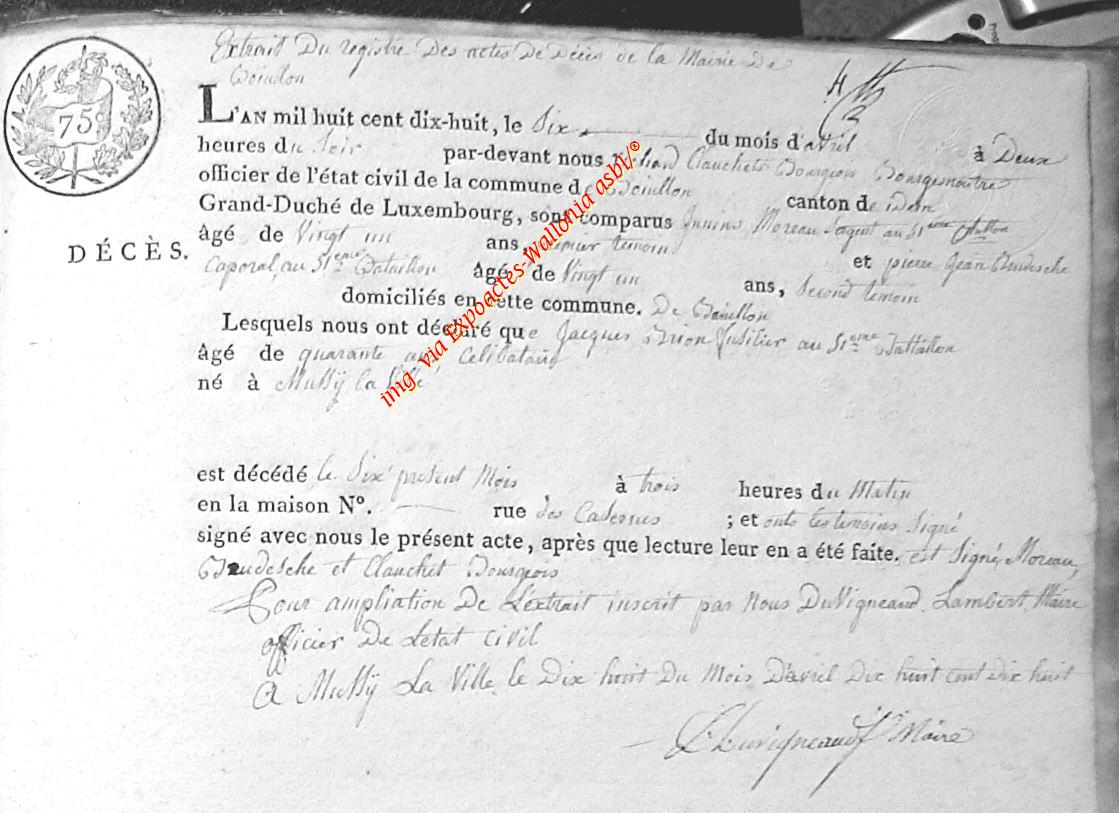 Extrait Du registre Des actes De Décès de la Mairie De
Bouillon
75
L'AN mil huit cent dix-huit, le Six du mois d'avril à Deux
heures du Soir par-devant nous Clauchet Bourgeois Bourgemaitre
officier de l'état civil de la commune de Bouillon canton d
Grand-Duché de Luxembourg, sont comparus Moreau Sergent au 51eme Battallon
DÉCÈS.
âgé de Vingt un ans, premier temoin et pierre Jean Baudesche
Caporal au 51eme Batallon âgé de Vingt un ans, Second temoin
domiciliés en cette commune. De Bouillon
Lesquels nous ont déclaré que Jacques Fusilier au 51eme Battallon
âgé de quarante ans Celibataire
né à Mussÿ La Ville
est décédé le Six present Mois à trois heures du Matin
en la maison N°. rue des Casernes ; et onts les temoins Signé
signé avec nous le présent acte, après que lecture leur en a été faite. est Signé, Moreau,
Baudesche et Clauchet Bourgeois
Pour ampliation De L'extrait inscrit par Nous DuVigneaud Lambert Maire
officier De Letat civil
A Mussÿ La Ville le Dix huit Du Mois D'avril Dix huit cent Dix huit
L Duvigneaud Maire
img via Expoactes-Wallonia asbl/®